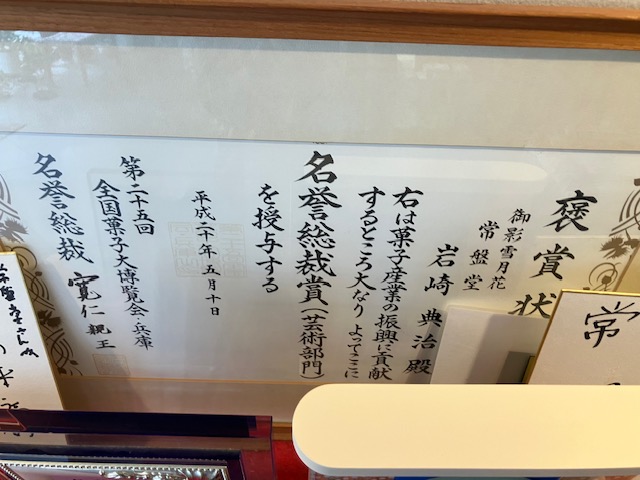 褒賞状
御影雪月花
常盤堂
岩崎典治殿
右は菓子産業の振興に貢献
するところ大なり よってここに
名誉総裁賞(芸術部門)
を授与する
平成二十年五月十日
第二十五回
全国菓子大博覧会・兵庫
名誉総裁 寛仁親王
常
常盤堂さん江